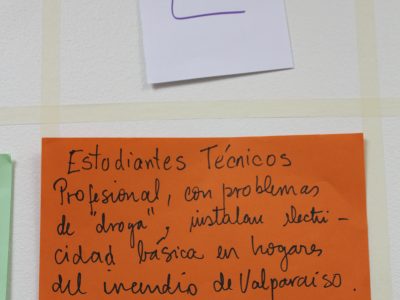 Estudiantes Técnicos
Profesional, con problemas
de "droga", instalan electri-
cidad básica en hogares
del incendio de Valparaíso.